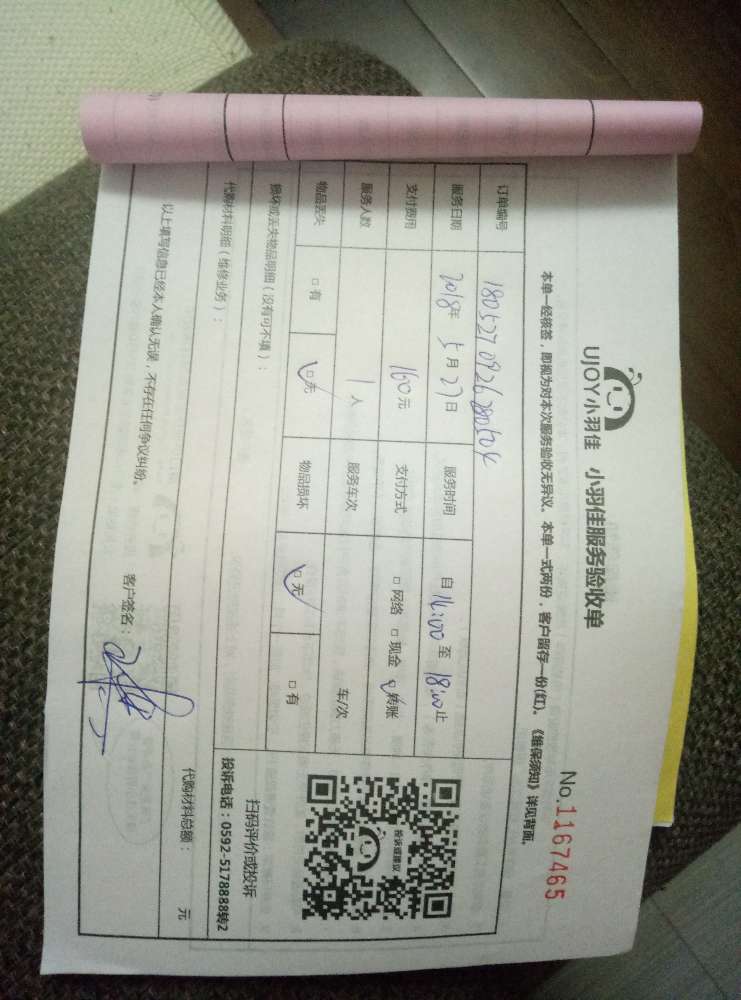 UJOY小羽佳 小羽佳服务验收单
No.1167465
本单一经核签，即视为对本次服务验收无异议。本单一式两份，客户留存一份(红)。《维保须知》详见背面。
订单编号 1805270926280504
服务日期 2018年 5月27日 服务时间 自 16:00 至 18:00 止
支付费用 160元 支付方式 □ 网络 □ 现金 ☑ 转账
服务人数 1 人 服务车次 车/次
物品丢失 □ 有 ☑ 无 物品损坏 ☑ 无 □ 有
损坏或丢失物品明细（没有可不填）：
代购材料明细（维修业务）：
投诉或建议
扫码评价或投诉
投诉电话：0592-5178888转2
代购材料总额： 元
以上填写信息已经本人确认无误，不存在任何争议纠纷。
客户签名：